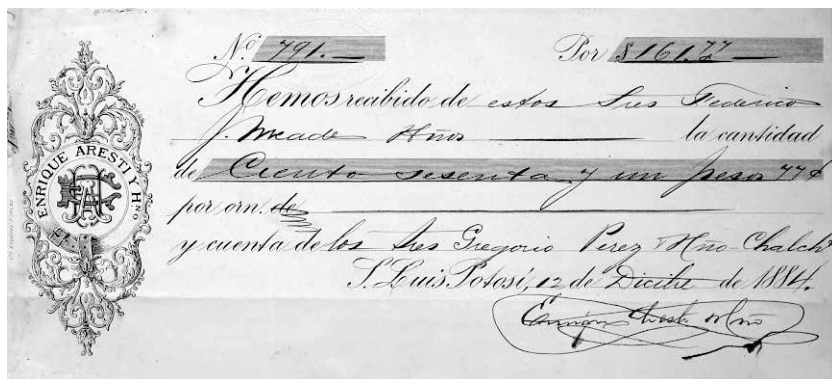 ENRIQUE ARESTI Y HNO
No 791.— Por $161.77
Hemos recibido de estos Sres Federico
J. Meade Hnos la cantidad
de Ciento sesenta y un pesos 77¢
por orn. de
y cuenta de los Sres Gregorio Perez y Hno-Chalch
S. Luis Potosí, 12 de Dicibe de 1884.
Enrique Aresti y Hno